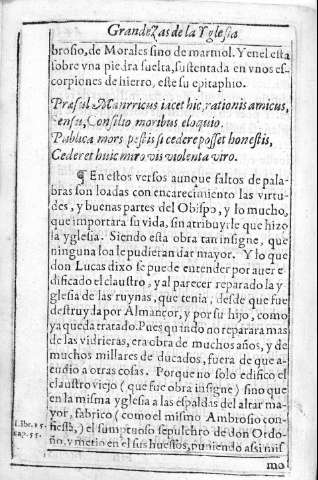 Grandezas de la Yglesia
brosio, de Morales sino de marmol. Y en el esta
sobre vna piedra suelta, sustentada en vnos es-
corpiones de hierro, este su epitaphio.
Præsul Manrricus iacet hic, rationis amicus,
Sensu, Consilio moribus eloquio.
Publica mors pestis si cedere posset honestis,
Cederet huic miro vis violenta viro.
¶ En estos versos aunque faltos de pala-
bras son loadas con encarecimiento las virtu-
des, y buenas partes del Obispo, y lo mucho,
que importara su vida, sin atribuyrle que hizo
la yglesia. Siendo esta obra tan insigne, que
ninguna loa le pudieran dar mayor. Y lo que
don Lucas dixo se puede entender por auer e-
dificado el claustro, y al parecer reparado la y-
glesia de las ruynas, que tenia, desde que fue
destruyda por Almançor, y por su hijo, como
ya queda tratado. Pues quando no reparara mas
de las vidrieras, era obra de muchos años, y de
muchos millares de ducados, fuera de que a-
cudio a otras cosas. Porque no solo edifico el
claustro viejo (que fue obra insigne) sino que
en la misma yglesia a las espaldas del altar ma
yor, fabrico (como el mismo Ambrosio con-
fiessa,) el sumptuoso sepulchro de don Ordo-
ño, y metio en el sus huessos, puniendo assi mis
Libr. 15.
cap. 55.
mo